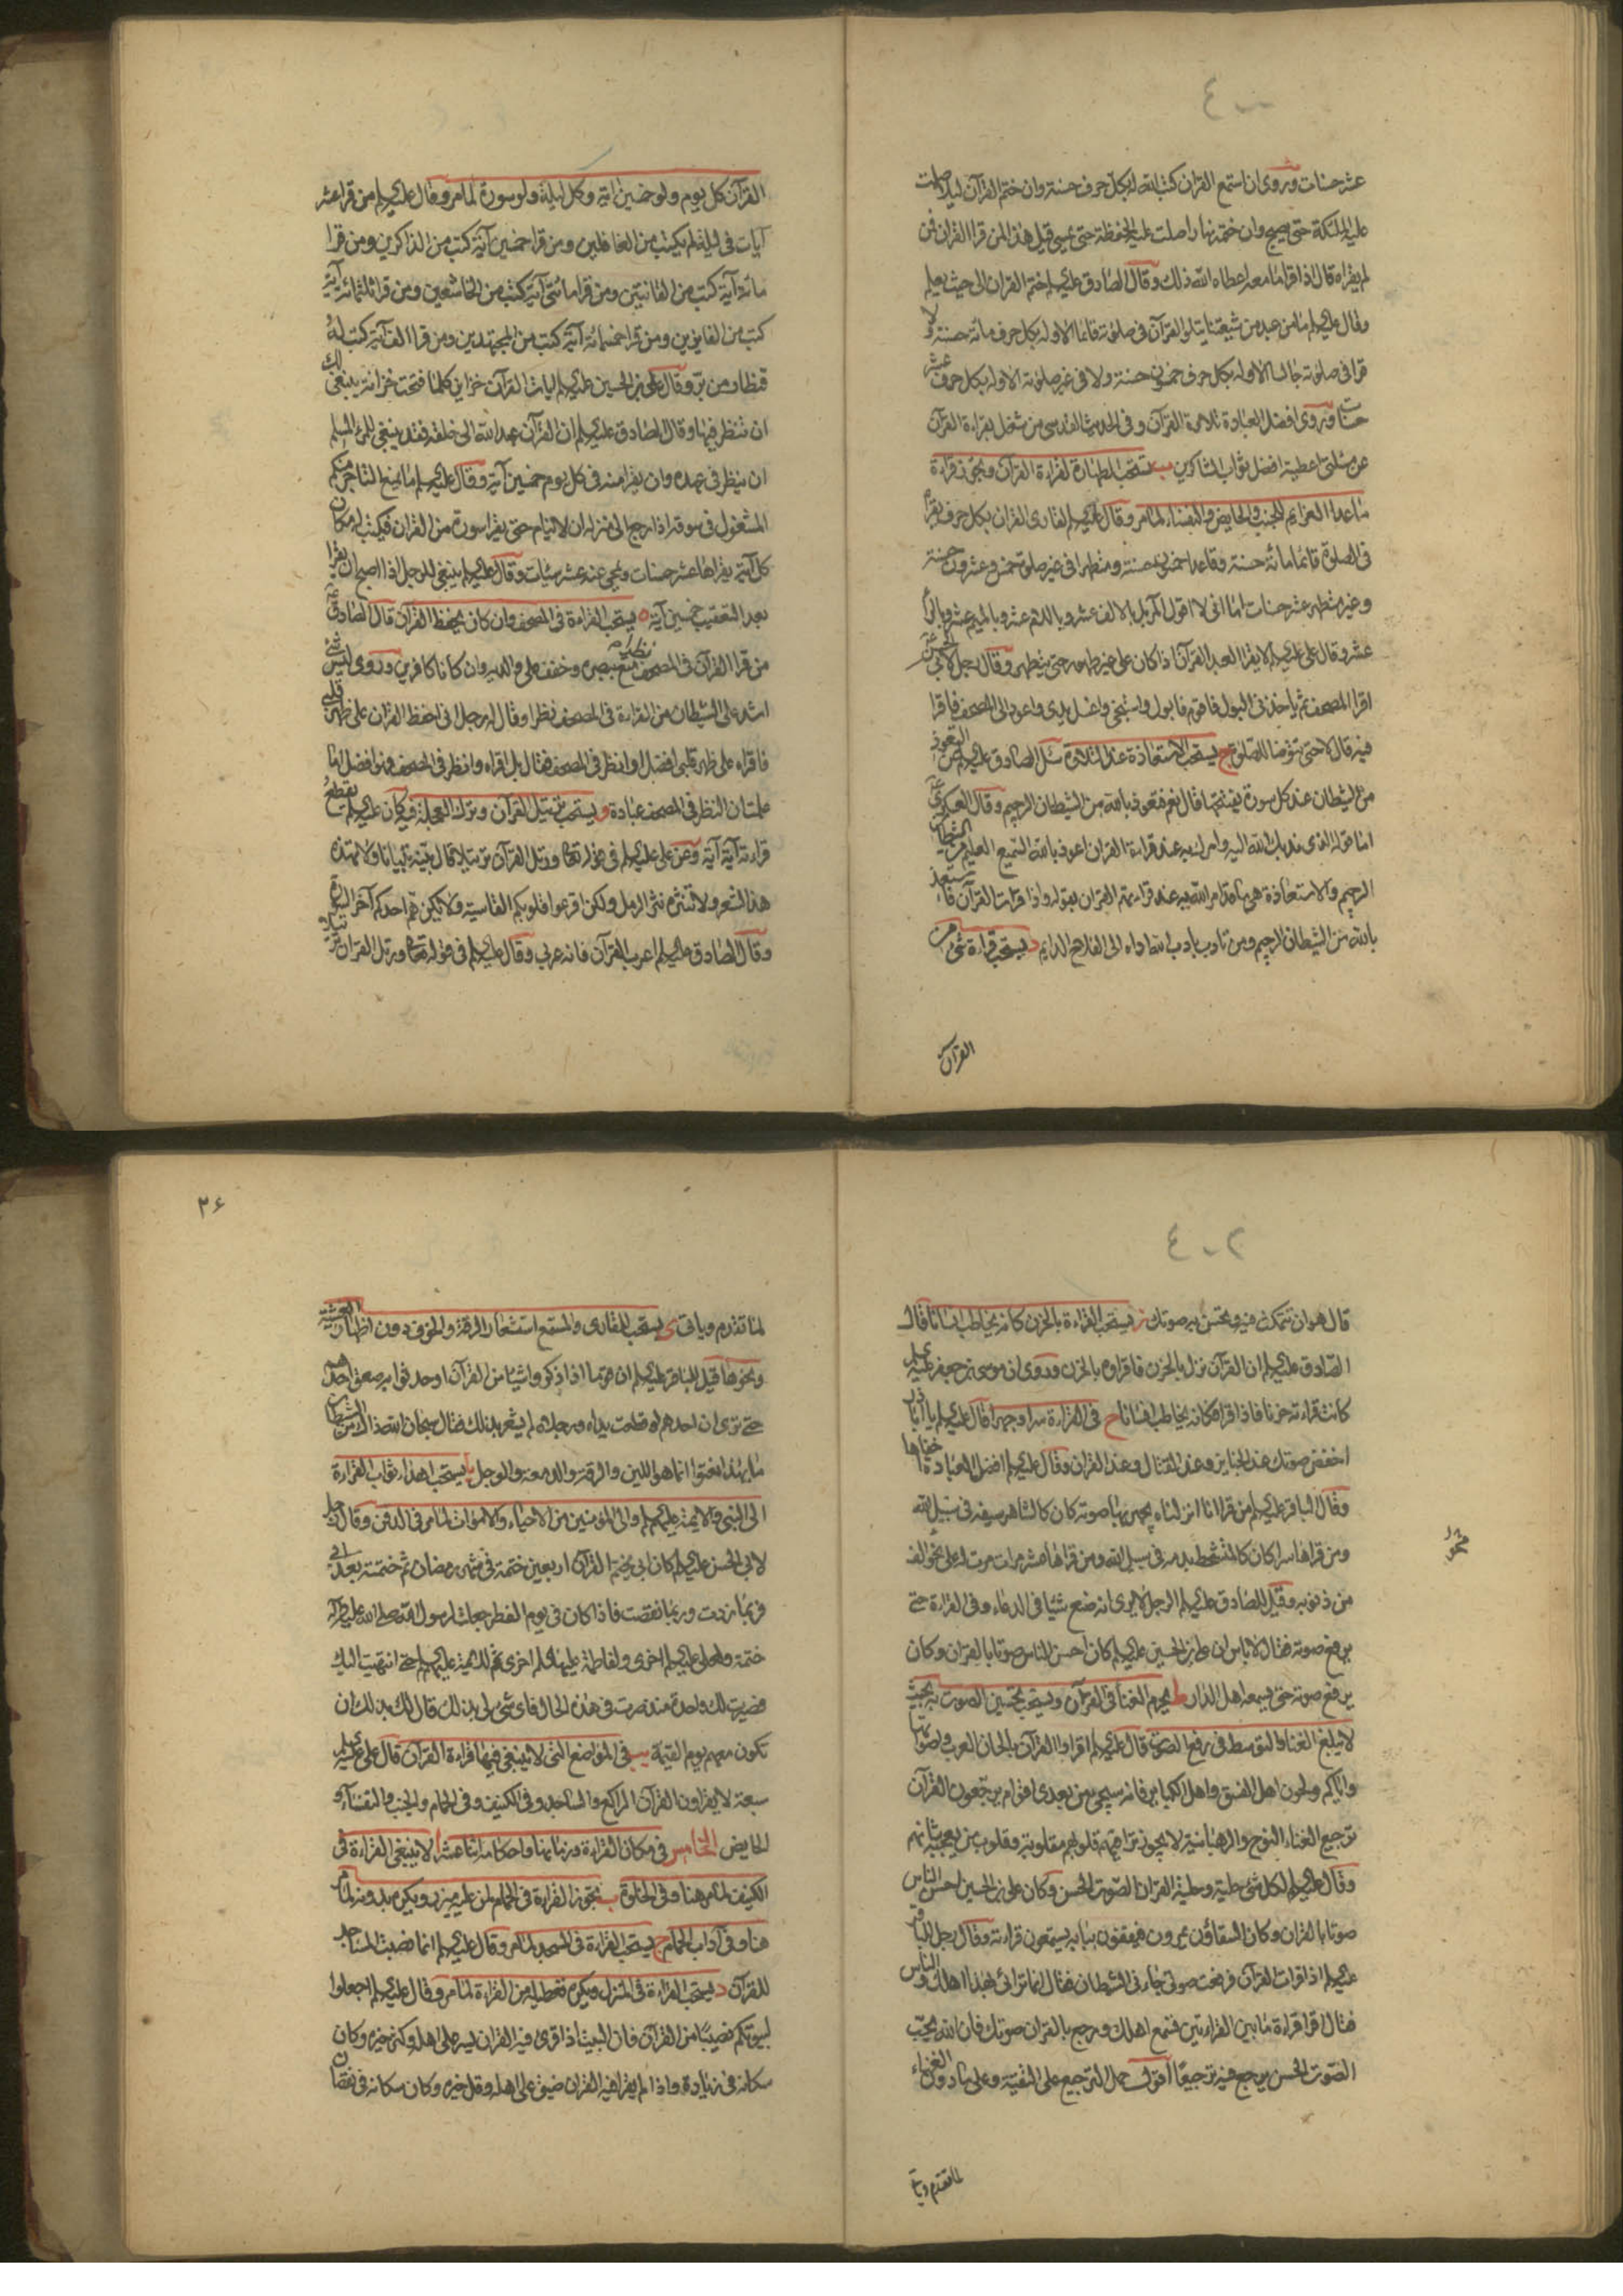 عشر حسنات وروى ان استمع القران كتب الله له بكل حرف حسنة وان ختم القرآن ليلا صلت
عليه الملئكة حتى يصبح وان ختمه نهارا صلت عليه الحفظة حتى يمسى قيل هذا لمن قرا القران فمن
لم يقراه قال اذا قرا ما معه اعطاه الله ذلك وقال الصادق عليه السلم ختم القران الى حيث يعلم
وقال عليه السلم ما من عبد من شيعتنا يتلو القرآن فى صلوته قائما الا وله بكل حرف مائة حسنة ولا
قرا فى صلوته جالسا الا وله بكل حرف خمسون حسنة ولا فى غير صلوته الا وله بكل حرف عشر
حسنات وروى افضل العبادة تلاوة القرآن وفى الحديث القدسى من شغل بقراءة القرآن
عن مسئلتى اعطيته افضل ثواب الشاكرين ب يستحب الطهارة لقراءة القرآن ويجوز قراءة
ما عدا العزايم للجنب والحايض والنفساء لما مر وقال عليه السلم لقارى القران بكل حرف يقرأ
فى الصلوة قائما مائة حسنة وقاعدا خمسون حسنة ومتطهرا فى غير صلوة خمس وعشرون حسنة
وغير متطهر عشر حسنات اما انى لا اقول المر بل بالالف عشر وباللام عشر وبالميم عشر وبالرا
عشر وقال على عليه السلم لا يقرا العبد القرآن اذا كان على غير طهور حتى يتطهر وقال رجل لابى الحسن
اقرا المصحف ثم ياخذنى البول فاقوم فابول واستنجى واغسل يدى واعود الى المصحف فاقرا
فيه قال لا حتى تتوضا للصلوة ج يستحب الاستعاذة عند التلاوة سئل الصادق عليه السلم عن التعوذ
من الشيطان عند كل سورة يفتتحها قال نعم فتعوذ بالله من الشيطان الرجيم وقال العسكرى
اما قوله الذى ندبك الله اليه وامرك به عند قراءة القران اعوذ بالله السميع العليم من الشيطان
الرجيم والاستعاذة هى ما قد امر الله به عند قراءتهم القران بقوله واذا قرات القرآن فاستعذ
بالله من الشيطان الرجيم ومن تادب بادب الله اداه الى الفلاح الدايم د يستحب قراءة شئ من
القرآن
القرآن كل يوم ولو خمسين آية وكل ليلة ولو سورة لما مر وقال عليه السلم من قرا عشر
آيات فى ليلة لم يكتب من الغافلين ومن قرا خمسين آية كتب من الذاكرين ومن قرا
مائة آية كتب من القانتين ومن قرا مائتى آية كتب من الخاشعين ومن قرا ثلثمائة آية
كتب من الفايزين ومن قرا خمسمائة آية كتب من المجتهدين ومن قرا الف آية كتب له
قنطار من بر وقال على بن الحسين عليه السلم آيات القرآن خزاين كلما فتحت خزانة ينبغى لك
ان تنظر فيها وقال الصادق عليه السلم ان القرآن عهد الله الى خلقه فقد ينبغى للمرء المسلم
ان ينظر فى عهده وان يقرا منه فى كل يوم خمسين آية وقال عليه السلم ما يمنع التاجر منكم
المشغول فى سوقه اذا رجع الى منزله ان لا ينام حتى يقرا سورة من القران فيكتب له مكان
كل آية يقراها عشر حسنات ويمحى عنه عشر سيئات وقال عليه السلم ينبغى للرجل اذا اصبح ان يقرا
بعد التعقيب خمسين آية ه يستحب القراءة فى المصحف وان كان يحفظ القرآن قال الصادق
من قرا القرآن فى المصحف متع ببصره وخفف على والديه وان كانا كافرين وروى ليس شئ
اشد على الشيطان من القراءة فى المصحف نظرا وقال له رجل انى احفظ القران على ظهر قلبى
فاقراه على ظهر قلبى افضل او انظر فى المصحف فقال بل اقراه وانظر فى المصحف فهو افضل اما
علمت ان النظر فى المصحف عبادة و يستحب ترتيل القرآن وترك العجلة فيه كان عليه السلم يقطع
قراءته آية آية وعن على عليه السلم فى قوله تعالى ورتل القرآن ترتيلا قال بينه تبيانا ولا تهذه
هذ الشعر ولا تنثره نثر الرمل ولكن اقرعوا قلوبكم القاسية ولا يكن هم احدكم آخر السورة
وقال الصادق عليه السلم اعرب القرآن فانه عربى وقال عليه السلم فى قوله تعالى ورتل القران ترتيلا
قال هو ان تتمكث فيه وتحسن به صوتك ز يستحب القراءة بالحزن كانه يخاطب انسانا قال
الصادق عليه السلم ان القرآن نزل بالحزن فاقراوه بالحزن وروى ان موسى بن جعفر عليه السلم
كانت قراءته حزنا فاذا قرا فكانه يخاطب انسانا ح فى القراءة سرا وجهرا قال عليه السلم يا اباذر
اخفض صوتك عند الجنايز وعند القتال وعند القران وقال عليه السلم افضل العبادة اخفاها
وقال الباقر عليه السلم من قرا انا انزلناه يجهر بها صوته كان كالشاهر سيفه فى سبيل الله
ومن قراها سرا كان كالمتشحط بدمه فى سبيل الله ومن قراها عشر مرات مرت له على نحو الف
من ذنوبه وقيل للصادق عليه السلم الرجل لا يرى انه صنع شيئا فى الدعاء وفى القراءة حتى
يرفع صوته فقال لا باس ان على بن الحسين عليه السلم كان احسن الناس صوتا بالقران وكان
يرفع صوته حتى يسمعه اهل الدار ط يحرم الغناء فى القرآن ويستحب تحسين الصوت به بحيث
لا يبلغ الغناء والتوسط فى رفع الصوت قال عليه السلم اقراوا القرآن بالحان العرب واصواتها
واياكم ولحون اهل الفسق واهل الكباير فانه سيجئ من بعدى اقوام يرجعون القرآن
ترجيع الغناء والنوح والرهبانية لا يجوز تراقيهم قلوبهم مقلوبة وقلوب من يعجبه شانهم
وقال عليه السلم لكل شئ حلية وحلية القران الصوت الحسن وكان على بن الحسين احسن الناس
صوتا بالقران وكان السقاؤن يمرون فيقفون ببابه يستمعون قراءته وقال رجل للباقر
عليه السلم اذا قرات القرآن فرفعت صوتى جاءنى الشيطان فقال انما ترائى بهذا اهلك والناس
فقال اقرا قراءة ما بين القراءتين فتسمع اهلك ورجع بالقران صوتك فان الله يحب
الصوت الحسن يرجع فيه ترجيعا اقول حمل الترجيع على التقية وعلى ما دون الغناء
لما تقدم ويأتى
٢٦
لما تقدم وياتى ى يستحب للقارى والمستمع استشعار الرقة والخوف دون اظهار الغشية
ونحوها قيل للباقر عليه السلم ان قوما اذا ذكروا شيئا من القرآن او حدثوا به صعق احدهم
حتى ترى ان احدهم لو قطعت يداه ورجلاه لم يشعر بذلك فقال سبحان الله ذاك من الشيطان
ما بهذا نعتوا انما هو اللين والرقة والدمعة والوجل يا يستحب اهداء ثواب القراءة
الى النبى والائمة عليهم السلم والى المؤمنين من الاحياء والاموات لما مر فى الدفن وقال رجل
لابى الحسن عليه السلم كان ابى يختم القرآن اربعين ختمة فى شهر رمضان ثم ختمته بعد ابى
فربما زدت وربما نقصت فاذا كان فى يوم الفطر جعلت لرسول الله صلى الله عليه وآله
ختمة ولعلى عليه السلم اخرى ولفاطمة عليها السلم اخرى ثم للائمة عليهم السلم حتى انتهيت اليك
فصيرت لك واحدة منذ صرت فى هذه الحال فاى شئ لى بذلك قال لك بذلك ان
تكون معهم يوم القيمة يب فى المواضع التى لا ينبغى فيها قراءة القرآن قال على عليه السلم
سبعة لا يقراون القرآن الراكع والساجد وفى الكنيف وفى الحمام والجنب والنفساء و
الحايض الخامس فى مكان القراءة وزمانها واحكامها اثنا عشر ا لا ينبغى القراءة فى
الكنيف لما مر هنا وفى الخلوة ب تجوز القراءة فى الحمام لمن عليه ميزر ويكره بدونه لما مر
هنا وفى آداب الحمام ج يستحب القراءة فى المسجد لما مر وقال عليه السلم انما نصبت المساجد
للقرآن د يستحب القراءة فى المنزل ويكره تعطيله من القراءة لما مر وقال عليه السلم اجعلوا
لبيوتكم نصيبا من القرآن فان البيت اذا قرى فيه القران يسر على اهله وكثر خيره وكان
سكانه فى زيادة واذا لم يقرا فيه القران ضيق على اهله وقل خيره وكان سكانه فى نقصان